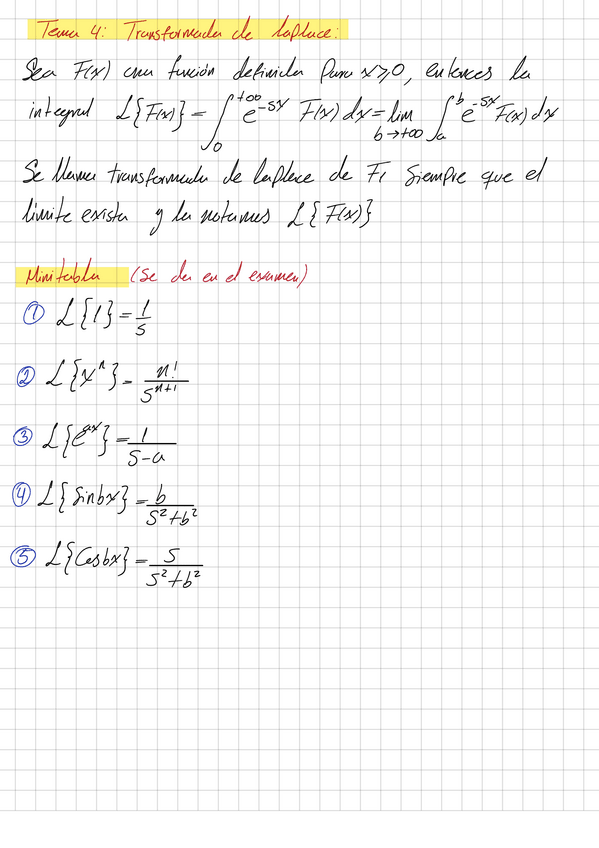 Tema 4: Transformada de laplace:
Sea F(x) una función definida para x⩾0, entonces la
integral L{F(x)} = ∫₀^{+∞} e^{-sx} F(x) dx = lim_{b→+∞} ∫ₐ^b e^{-sx} F(x) dx
Se llama transformada de laplace de F, siempre que el
limite exista y la notamos L{F(x)}
Minitabla (se da en el examen)
① L{1} = 1/s
② L{xⁿ} = n!/s^{n+1}
③ L{e^{ax}} = 1/(s-a)
④ L{sinbx} = b/(s²+b²)
⑤ L{Cosbx} = s/(s²+b²)